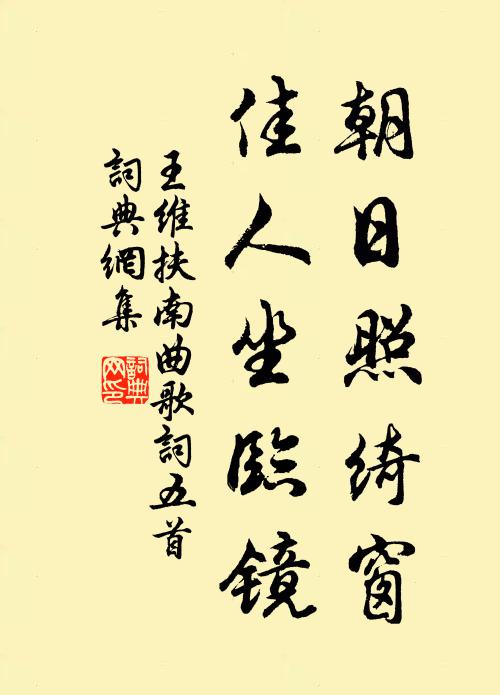 朝日照绮窗
佳人坐臨镜
王维扶南曲歌詞五首
詞典網集
詞典网印